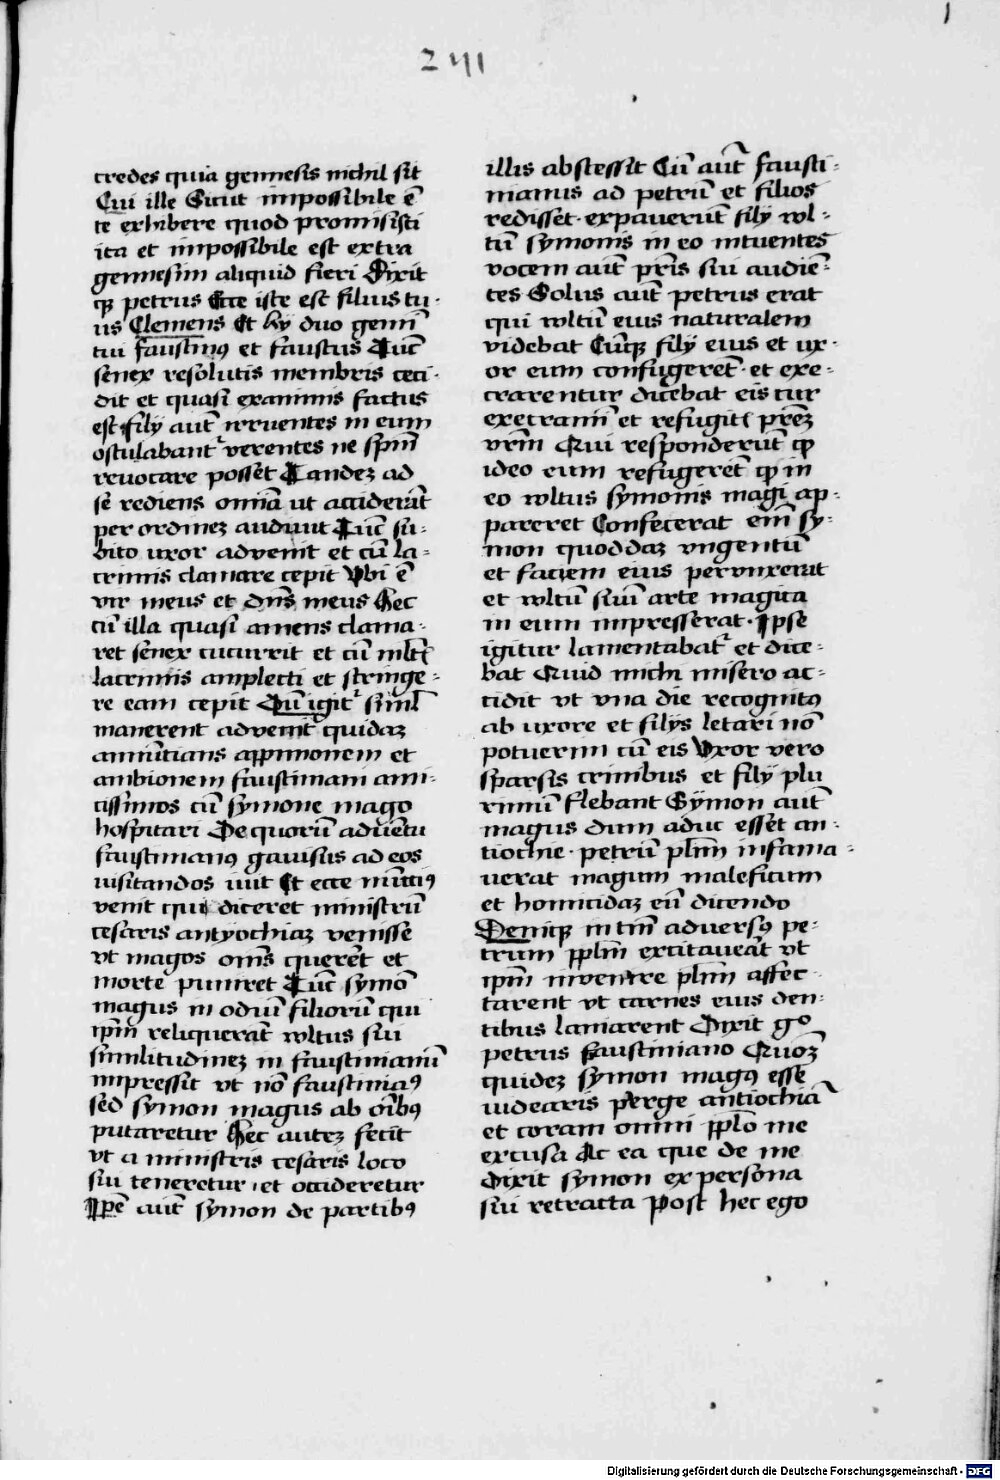 2 411
1
credes quia gennesis nichil sit
Cui ille Sicut impossibile ē
te exhibere quod promisisti
ita et impossibile est extra
gennesim aliquid fieri Dixit
qꝫ petrus Ecce iste est filius tu-
us Clemens Et hy duo gemī
tui faustinꝰ et faustus Tūc
senex resolutis membris ceci-
dit et quasi exanimis factus
est filij aut̄ irruentes in eum
osculabantᷣ verentes ne spm̄
revocare posset Tandeꝫ ad
se rediens omīa ut acciderāt
per ordineꝫ audivit Tūc su-
bito uxor advenit et cū la-
crimis clamare cepit Vbi ē
vir meus et dn̄s meus Hec
cū illa quasi amens clama-
ret senex cucurrit et cū ml̄t
lacrimis amplecti et stringe-
re eam cepit Cū igitᷣ siml̄
manerent advenit quidaꝫ
annūtians appionem et
ambionem faustiniani ami-
cissimos cū symone mago
hospitari De quorū adventu
faustinianꝰ gavisus ad eos
visitandos ivit Et ecce nūctiꝰ
venit qui diceret ministrū
cesaris antyochiaꝫ venisse
vt magos om̄s querēt et
morte puniret Tūc symō
magus in odiū filiorū qui
ip̄m reliquerāt vultus sui
similitudineꝫ in faustinianū
impressit vt nō faustiniaꝰ
sed symon magus ab oībꝰ
putaretur Hec auteꝫ fecit
vt a ministris cesaris loco
sui teneretur et occideretur
Ip̄e aut̄ symon de partibꝰ
illis abscessit Cū aut̄ fausti-
nianus ad petrū et filios
redisset expaverūt filij vul-
tū symonis in eo intuentes
vocem aut̄ pr̄is sui audiē-
tes Solus aut̄ petrus erat
qui vultū eius naturalem
videbat Cūqꝫ filij eius et ux-
or eum confugerēt et exe-
crarentur dicebat eis cur
execramī et refugit pr̄eꝫ
vrm̄ Qui responderūt ꝙ
ideo eum refugerēt ꝙ in
eo vultus symonis magi ap-
pareret Confecerat em̄ sy-
mon quoddaꝫ vngentū
et faciem eius pervnxerat
et vultū suū arte magica
in eum impresserat Ipse
igitur lamentabatᷣ et dice-
bat Quid michi misero ac-
cidit vt vna die recognitꝰ
ab uxore et filijs letari nō
potuerim cū eis Vxor vero
sparsis crinibus et filij plu
rimū flebant Symon aut̄
magus dum aduc esset an-
tiochie petrū plm̄ infama-
verat magum maleficum
et homicidaꝫ eū dicendo
Deniqꝫ in tm̄ adversꝰ pe-
trum pplm̄ excitaveāt vt
ip̄m invenire plm̄ affec-
tarent vt carnes eius den-
tibus laniarent Dixit gͦ
petrus faustiniano Quoꝫ
quideꝫ symon magꝰ esse
videaris perge antiochiā
et coram omni pplo me
excusa Ac ea que de me
dixit symon ex persona
sui retracta Post hec ego
Digitalisierung gefördert durch die Deutsche Forschungsgemeinschaft - DFG